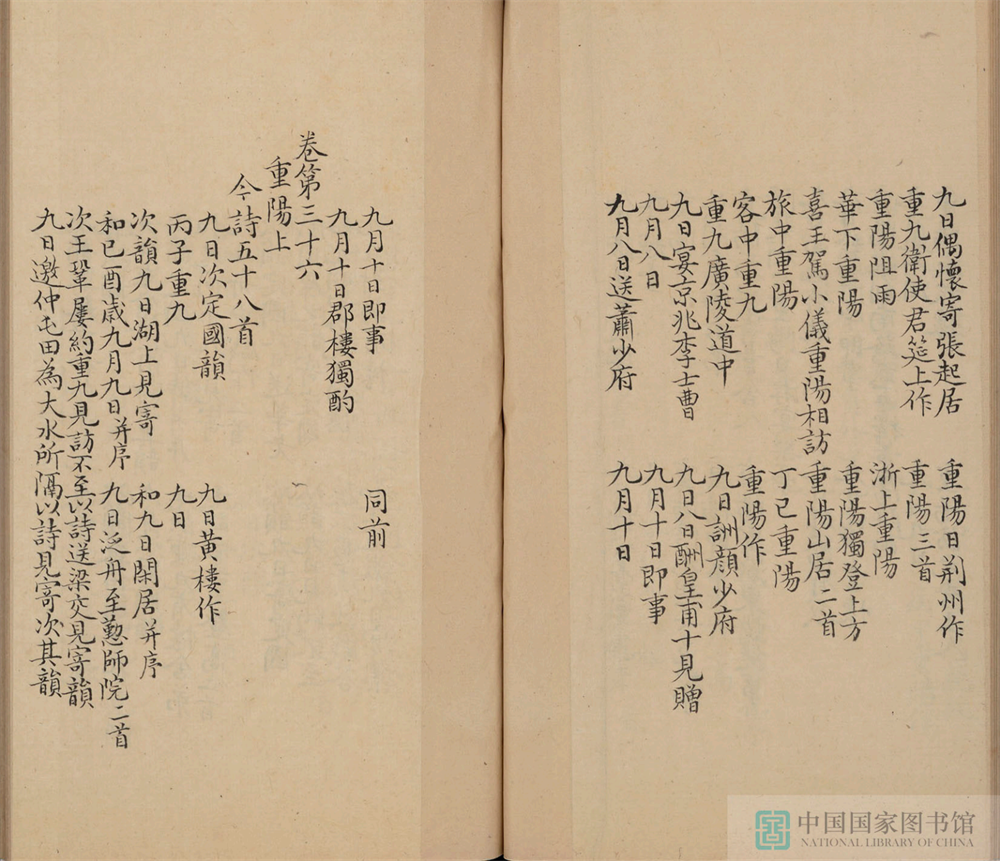 九日偶懷寄張起居　重陽日荆州作
重九衛使君筵上作　重陽三首
重陽阻雨　浙上重陽
華下重陽　重陽獨登上方
喜王駕小儀重陽相訪　重陽山居二首
旅中重陽　丁巳重陽
客中重九　重陽作
重九廣陵道中　九日訓顔少府
九日宴京兆李士曹　九日八日酬皇甫十見贈
九月八日　九月十日即事
九月八日送蕭少府　九月十日
九月十日即事　同前
九月十日郡樓獨酌
卷第三十六
重陽上
今詩五十八首
九日次定國韻　九日黄樓作
丙子重九　九日
次韻九日湖上見寄　和九日閑居并序
和已酉歳九月九日并序　九日泛舟至懃師院二首
次王鞏屢約重九見訪不至以詩送梁交見寄韻
九日邀仲屯田為大水所隔以詩見寄次其韻
中国国家图书馆
NATIONAL LIBRARY OF CHINA